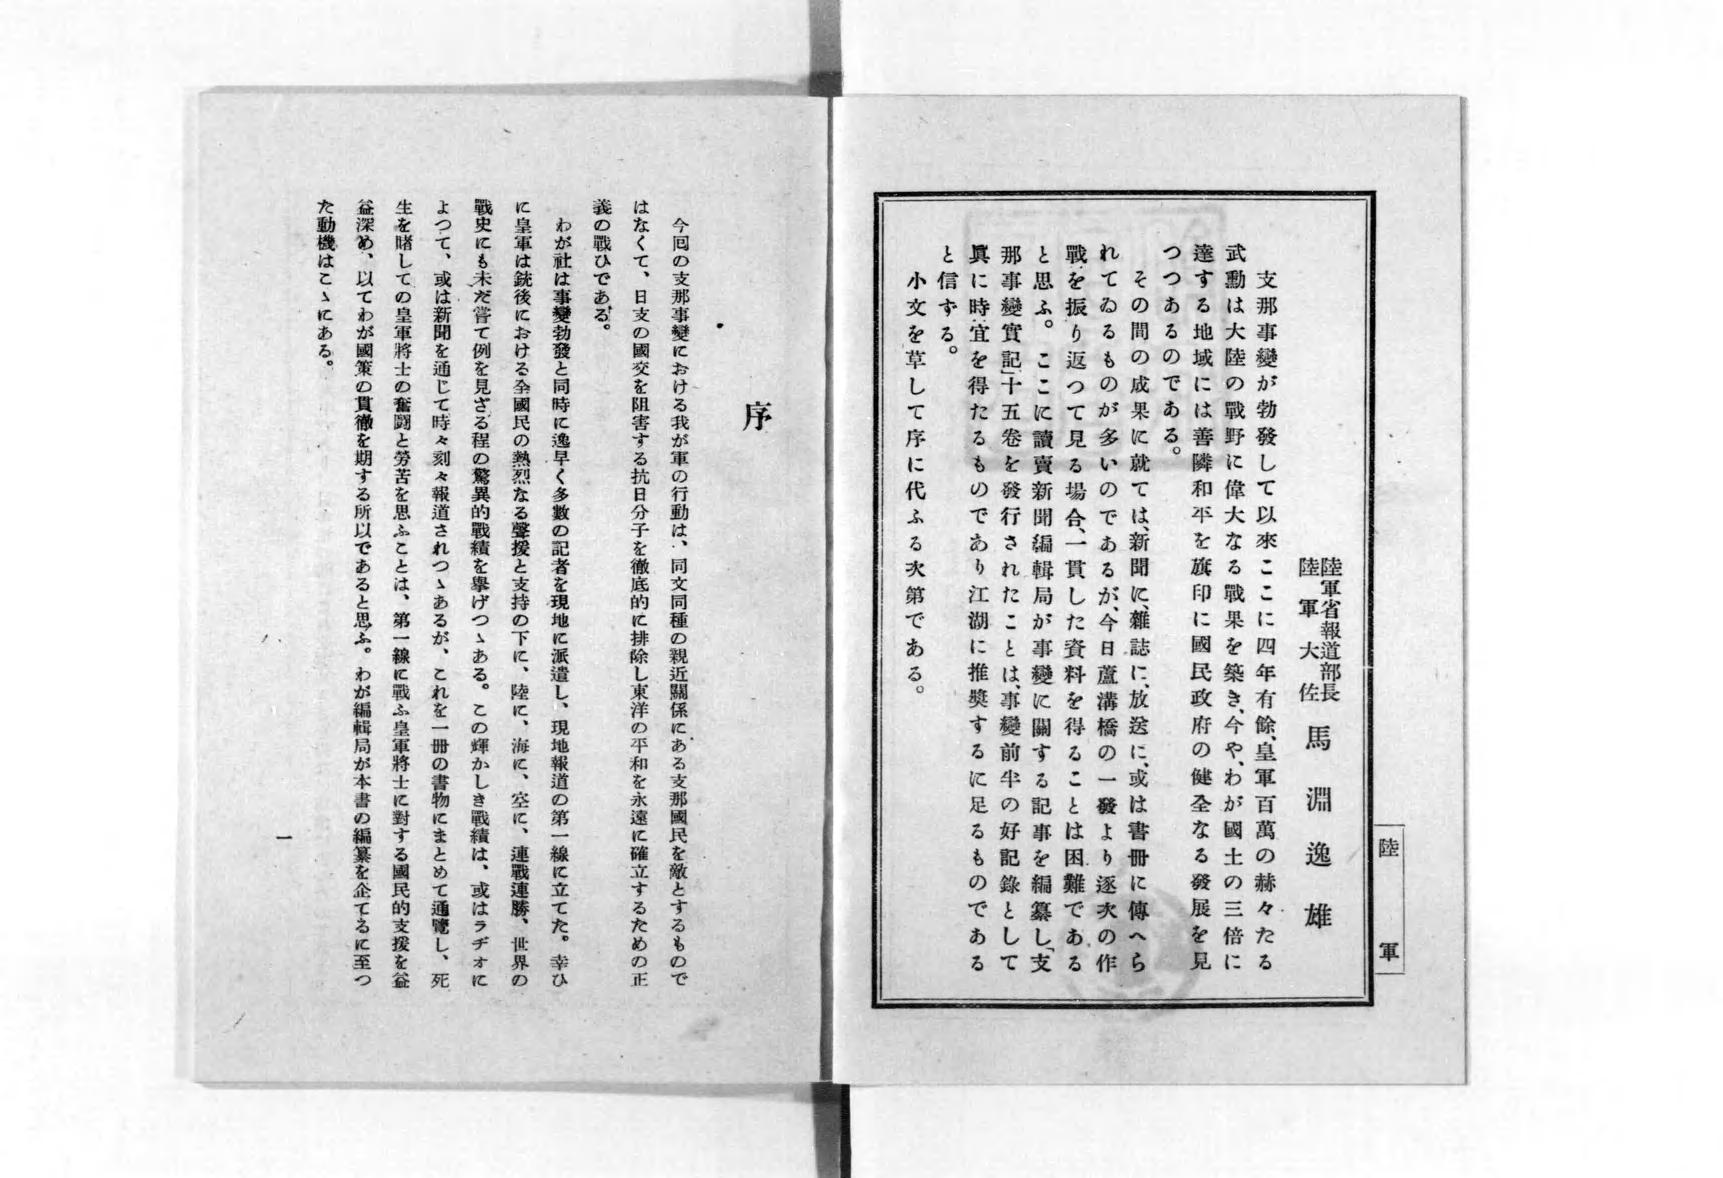 陸軍
陸軍省報道部長
陸軍大佐
馬淵逸雄
支那事變が勃發して以來ここに四年有餘、皇軍百萬の赫々たる
武勳は大陸の戰野に偉大なる戰果を築き、今や、わが國土の三倍に
達する地域には善隣和平を旗印に國民政府の健全なる發展を見
つつあるのである。
その間の成果に就ては、新聞に、雜誌に、放送に、或は書冊に傳へら
れてゐるものが多いのであるが、今日蘆溝橋の一發より逐次の作
戰を振り返つて見る場合、一貫した資料を得ることは困難である
と思ふ。ここに讀賣新聞編輯局が事變に關する記事を編纂し「支
那事變實記」十五卷を發行されたことは、事變前半の好記錄として
眞に時宜を得たるものであり江湖に推奬するに足るものである
と信ずる。
小文を草して序に代ふる次第である。
序
今回の支那事變における我が軍の行動は、同文同種の親近關係にある支那國民を敵とするもので
はなくて、日支の國交を阻害する抗日分子を徹底的に排除し東洋の平和を永遠に確立するための正
義の戰ひである。
わが社は事變勃發と同時に逸早く多數の記者を現地に派遣し、現地報道の第一線に立てた。幸ひ
に皇軍は銃後における全國民の熱烈なる聲援と支持の下に、陸に、海に、空に、連戰連勝、世界の
戰史にも未だ嘗て例を見ざる程の驚異的戰績を擧げつゝある。この輝かしき戰績は、或はラヂオに
よつて、或は新聞を通じて時々刻々報道されつゝあるが、これを一册の書物にまとめて通覽し、死
生を賭しての皇軍將士の奮鬪と勞苦を思ふことは、第一線に戰ふ皇軍將士に對する國民的支援を益
益深め、以てわが國策の貫徹を期する所以であると思ふ。わが編輯局が本書の編纂を企てるに至つ
た動機はこゝにある。
一